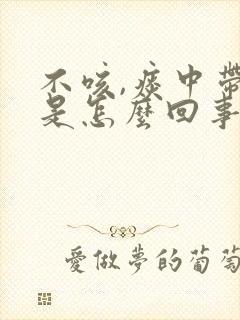 不咳,痰中帶
是怎麼回事
愛做夢的葡萄